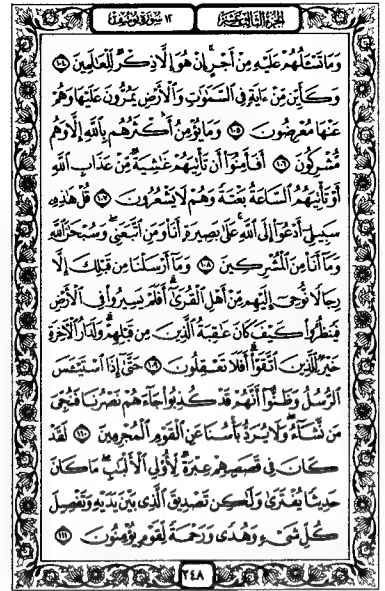 الجزء الثالث عشر ١٢ سورة يوسف
وَمَا تَسْـَٔلُهُمْ عَلَيْهِ مِنْ أَجْرٍ إِنْ هُوَ إِلَّا ذِكْرٌ لِّلْعَـٰلَمِينَ ١٠٤
وَكَأَيِّن مِّنْ ءَايَةٍ فِى ٱلسَّمَـٰوَٰتِ وَٱلْأَرْضِ يَمُرُّونَ عَلَيْهَا وَهُمْ
عَنْهَا مُعْرِضُونَ ١٠٥ وَمَا يُؤْمِنُ أَكْثَرُهُم بِٱللَّهِ إِلَّا وَهُم
مُّشْرِكُونَ ١٠٦ أَفَأَمِنُوٓا۟ أَن تَأْتِيَهُمْ غَـٰشِيَةٌ مِّنْ عَذَابِ ٱللَّهِ
أَوْ تَأْتِيَهُمُ ٱلسَّاعَةُ بَغْتَةً وَهُمْ لَا يَشْعُرُونَ ١٠٧ قُلْ هَـٰذِهِۦ
سَبِيلِىٓ أَدْعُوٓا۟ إِلَى ٱللَّهِ عَلَىٰ بَصِيرَةٍ أَنَا۠ وَمَنِ ٱتَّبَعَنِى وَسُبْحَـٰنَ ٱللَّهِ
وَمَآ أَنَا۠ مِنَ ٱلْمُشْرِكِينَ ١٠٨ وَمَآ أَرْسَلْنَا مِن قَبْلِكَ إِلَّا
رِجَالًا نُّوحِىٓ إِلَيْهِم مِّنْ أَهْلِ ٱلْقُرَىٰٓ أَفَلَمْ يَسِيرُوا۟ فِى ٱلْأَرْضِ
فَيَنظُرُوا۟ كَيْفَ كَانَ عَـٰقِبَةُ ٱلَّذِينَ مِن قَبْلِهِمْ وَلَدَارُ ٱلْـَٔاخِرَةِ
خَيْرٌ لِّلَّذِينَ ٱتَّقَوْا۟ أَفَلَا تَعْقِلُونَ ١٠٩ حَتَّىٰٓ إِذَا ٱسْتَيْـَٔسَ
ٱلرُّسُلُ وَظَنُّوٓا۟ أَنَّهُمْ قَدْ كُذِبُوا۟ جَآءَهُمْ نَصْرُنَا فَنُجِّىَ
مَن نَّشَآءُ وَلَا يُرَدُّ بَأْسُنَا عَنِ ٱلْقَوْمِ ٱلْمُجْرِمِينَ ١١٠ لَقَدْ
كَانَ فِى قَصَصِهِمْ عِبْرَةٌ لِّأُو۟لِى ٱلْأَلْبَـٰبِ مَا كَانَ
حَدِيثًا يُفْتَرَىٰ وَلَـٰكِن تَصْدِيقَ ٱلَّذِى بَيْنَ يَدَيْهِ وَتَفْصِيلَ
كُلِّ شَىْءٍ وَهُدًى وَرَحْمَةً لِّقَوْمٍ يُؤْمِنُونَ ١١١
٢٤٨